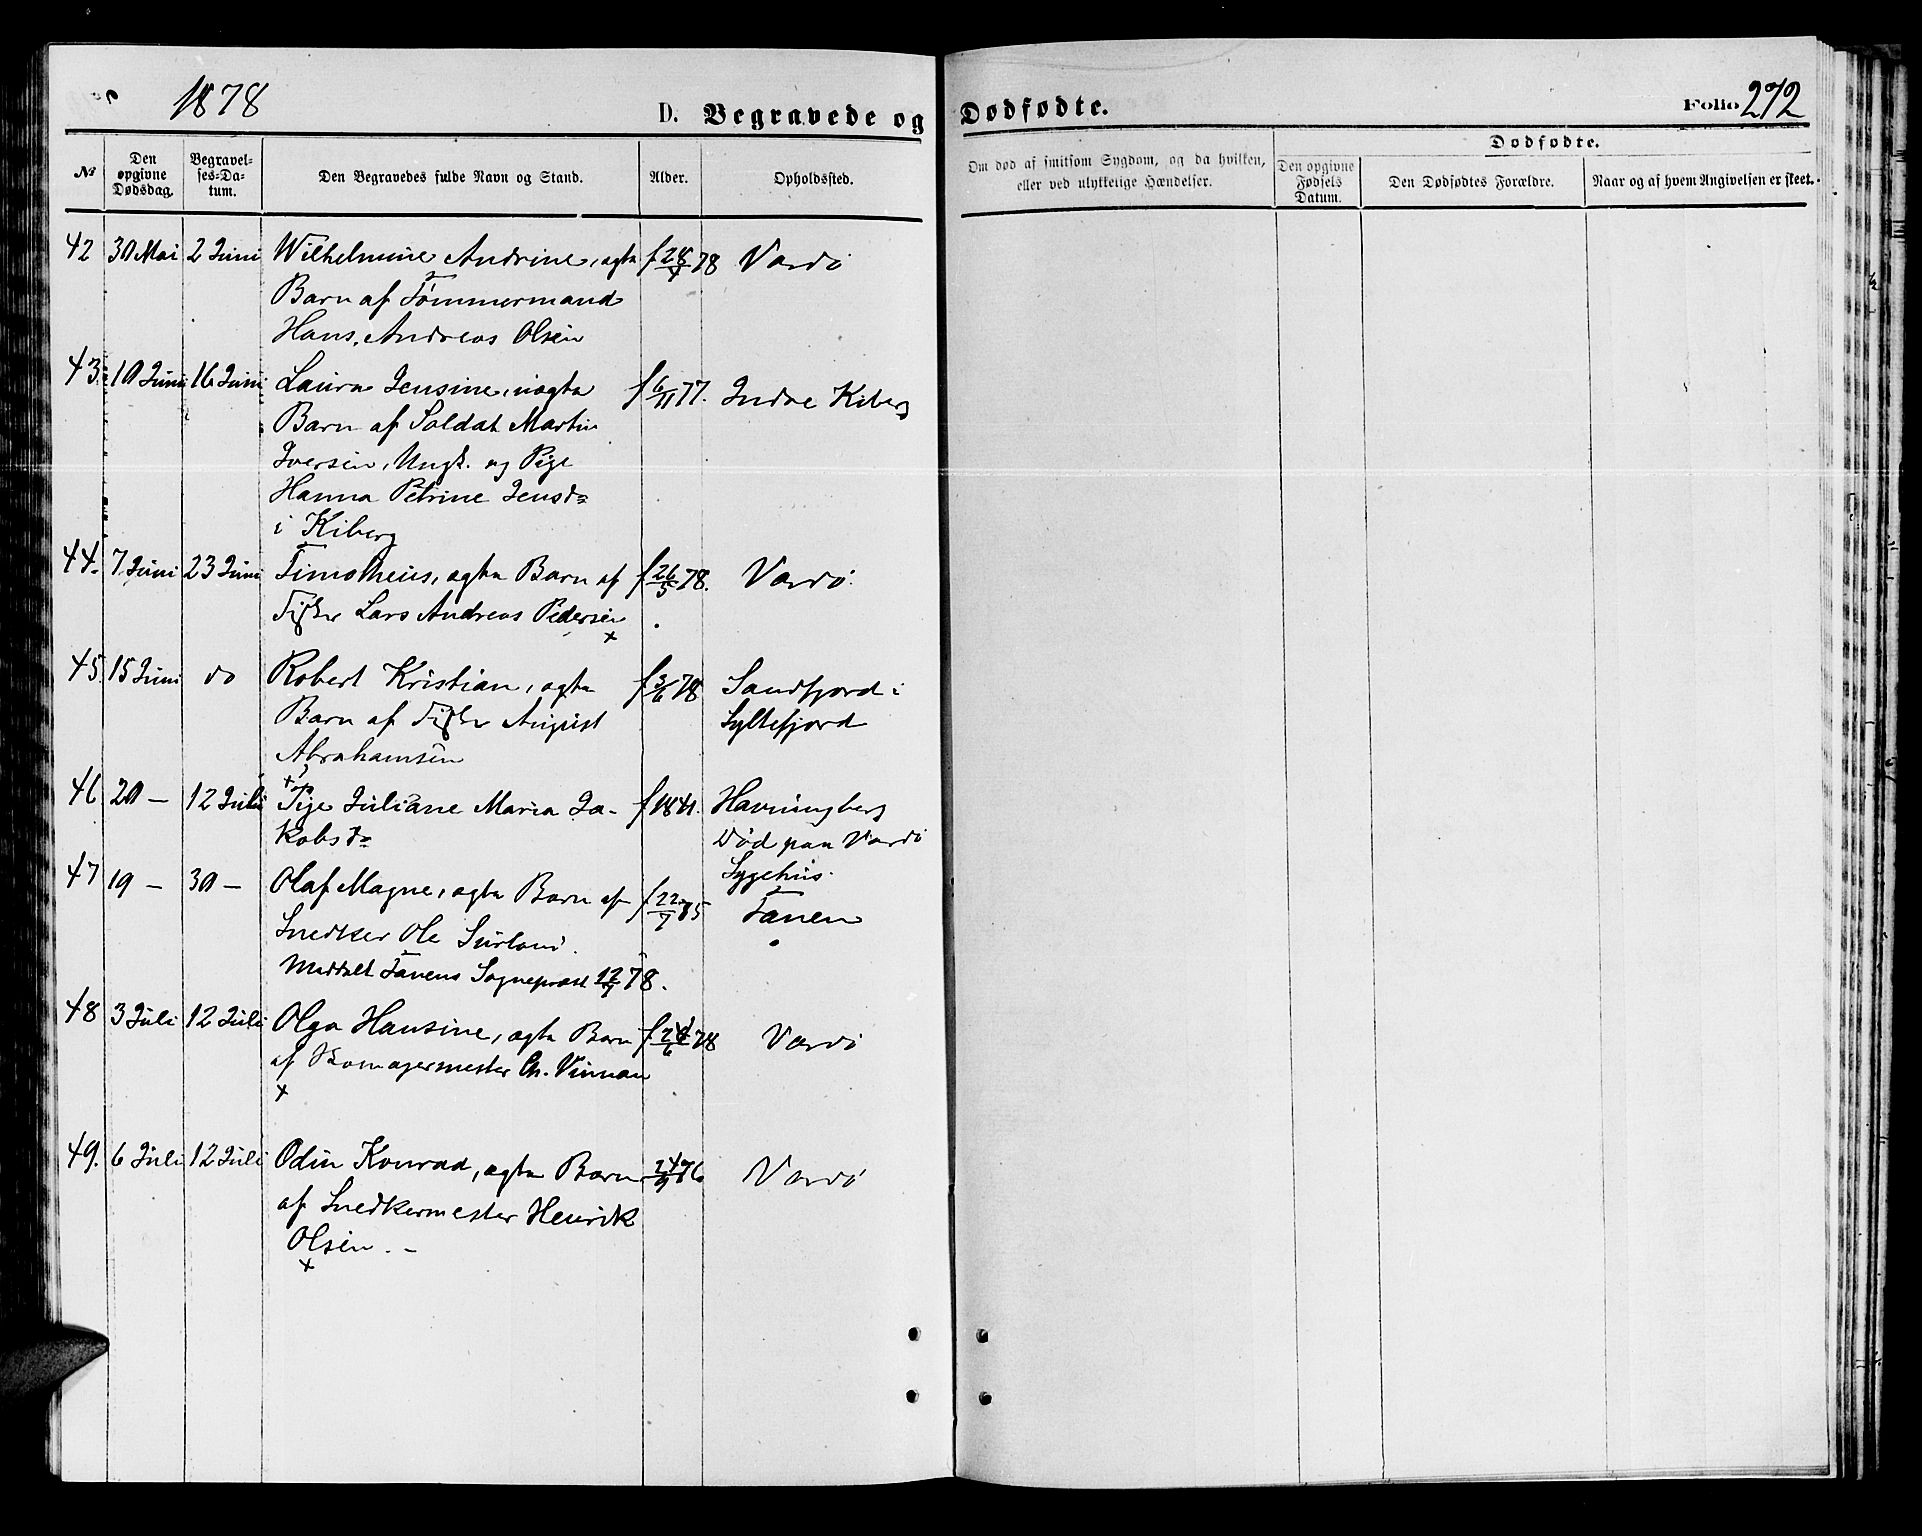 1878
D. Begravede og Dødfødte.
Folio 272
№
Den opgivne Dødsdag.
Begravelses-Datum.
Den Begravedes fulde Navn og Stand.
Alder.
Opholdssted.
Om død af smitsom Sygdom, og da hvilken, eller ved ulykkelige Hændelser.
Dødfødte.
Den opgivne Fødsels Datum.
Den Dødfødtes Forældre.
Naar og af hvem Angivelsen er skeet.
42 30 Mai 2 Juni Wilhelmine Andrine, ægta f 28/4 78 Vardö
Barn af Tömmermand
Hans Andreas Olsen
43. 10 Juni 16 Juni Laura Jensine, uægta f 6/11 77. Indre Kiberg
Barn af Soldat Martin
Iversen, Ungk. og Pige
Hanna Petrine Jensd=
i Kiberg
44. 7 Juni 23 Juni Timotheus, ægta Barn af f 26/5 78. Vardö.
Fisker Lars Andreas Pedersen
x
45. 15 Juni do Robert Kristian, ægta f 3/6 78 Sandfjord i
Barn af Fisker August Syltefjord
Abrahamsen
x
46 20 — 12 Juli Pige Juliane Maria Ja- f 1841. Havningberg
kobsd= Död paa Vardö
Sygehus.
47 19 — 30 — Olaf Magne, ægta Barn af f 22/7 75 Tanen
Snedker Ole
Meddelt Tanens Sogneprest 12/7 78.
48 3 Juli 12 Juli Olga Hansine, ægta Barn f 24/6 78 Vardö
af Skomagermester Ch.
x
49. 6 Juli 12 Juli Odin Konrad, ægta Barn 24/9 76 Vardö
af Snedkermester Henrik
Olsen. -
x